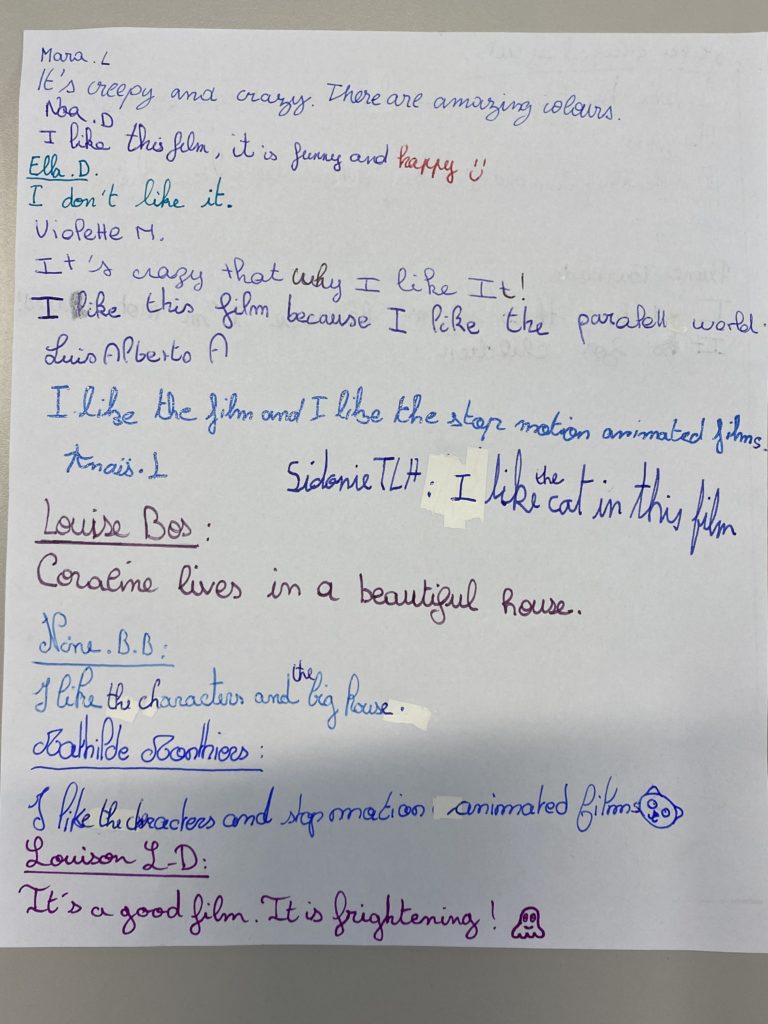 Mara.L
It's creepy and crazy. There are amazing colours.
Noa.D
I like this film, it is funny and happy
Ella.D.
I don't like it.
Violette M.
It's crazy that why I like It!
I like this film because I like the paralell world.
Luis Alberto A
I like the film and I like the stop motion animated films.
Anaïs.L
Sidonie TLH: I like the cat in this film
Louise Bos:
Coraline lives in a beautiful house.
Nine.B.B:
I like the characters and the big house.
Mathilde Monthiers:
I like the characters and stop motion animated films
Louison L-D:
It's a good film. It is frightening!